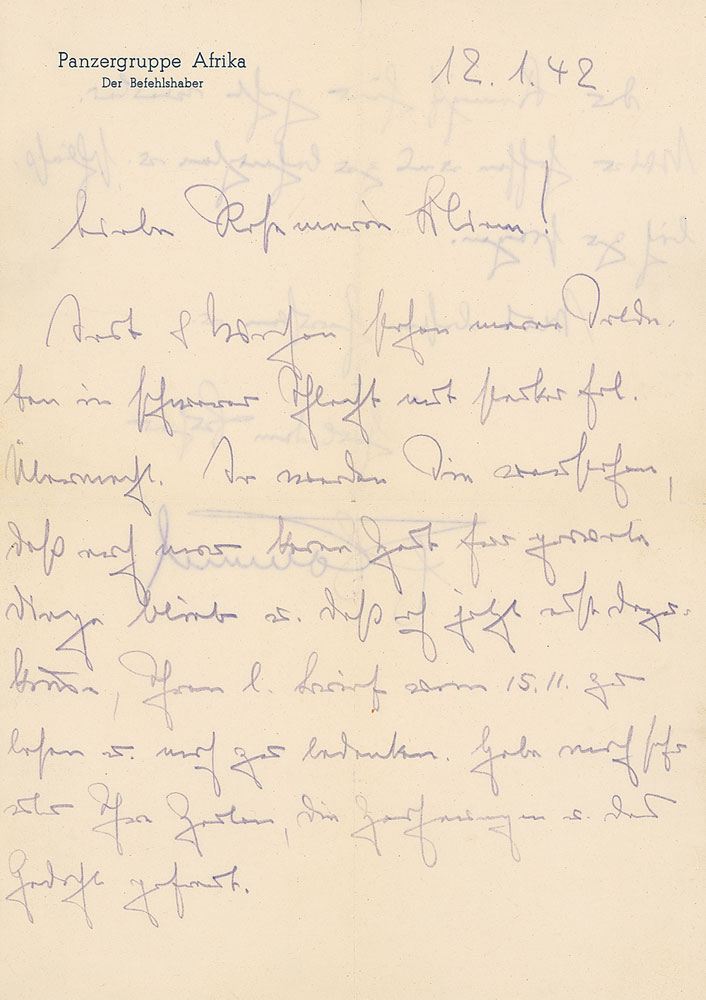 Panzergruppe Afrika
Der Befehlshaber
12.1.42
Liebe Rosemarie !
Seit 8 Wochen stehen meine Solda-
ten in schwerer Schlacht mit starker fdl.
Übermacht. So werden Sie verstehen,
daß mir keine Zeit für private
Dinge blieb u. daß ich jetzt erst dazu-
komme, Ihren l. Brief vom 15.11. zu
lesen u. mich zu bedanken. Habe mich sehr
über Ihre Zeilen, die Zeichnungen u. das
Gedicht gefreut.